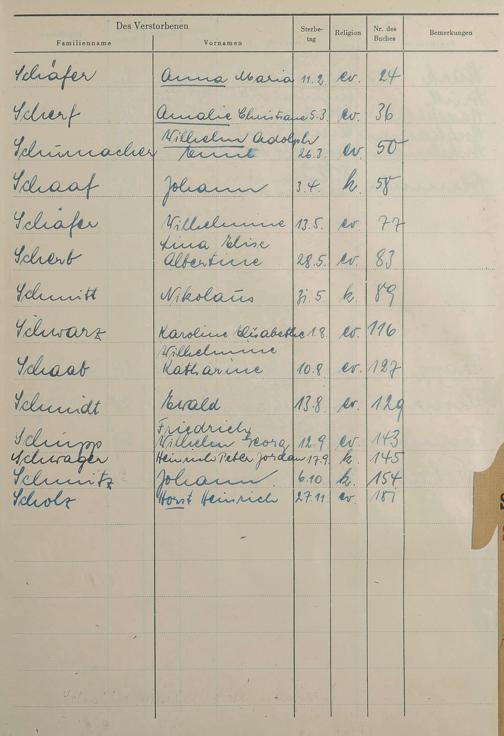 Des Verstorbenen
Familienname Vornamen Sterbe-tag Religion Nr. des Buches Bemerkungen
Schäfer Anna Maria 11.2. ev. 24
Scherf Amalie Christiane 5.3. ev. 36
Wilhelm Adolph
Schumacher Ernst 26.3. ev. 50
Schaaf Johann 3.4. k. 58
Schäfer Wilhelmine 13.5. ev. 77
Lina Elise
Scherb Albertine 28.5. ev. 83
Schmitt Nikolaus 31.5. k. 89
Schwarz Karoline Elisabethe 1.8. ev. 116
Wilhelmine
Schaab Katharine 10.8. ev. 127
Schmidt Ewald 13.8. ev. 129
Friedrich
Schupp Wilhelm Georg 12.9. ev. 143
Schwager Heinrich Peter Jordan 17.9. k. 145
Schmitz Johann 6.10. k. 154
Scholz Horst Heinrich 27.11. ev. 181